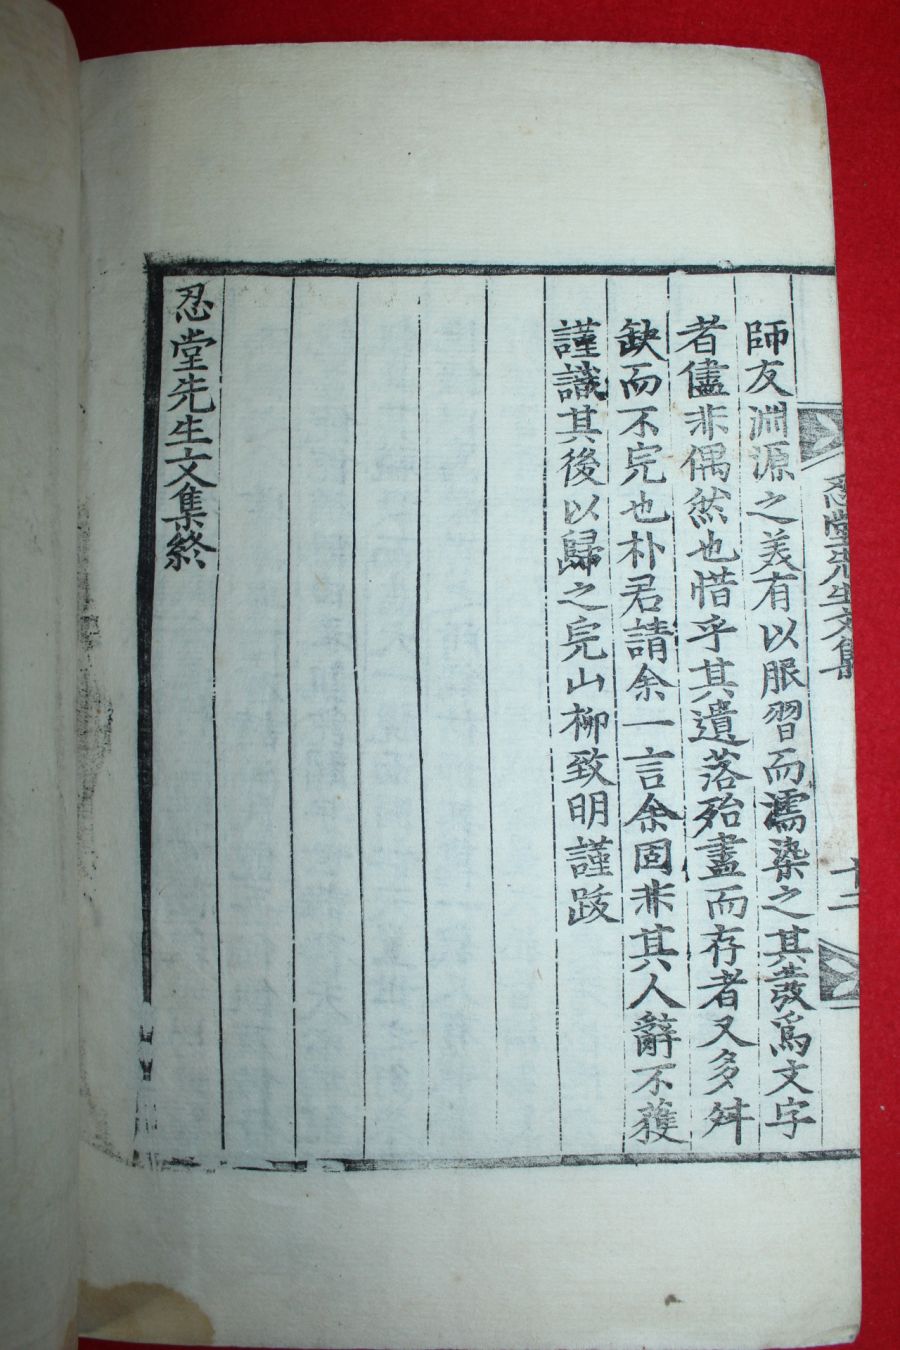 忍堂先生文集
十二
師友淵源之美有以服習而濡染之其發爲文字
者儘非偶然也惜乎其遺落殆盡而存者又多舛
缺而不完也朴君請余一言余固非其人辭不獲
謹識其後以歸之完山柳致明謹跋
忍堂先生文集終